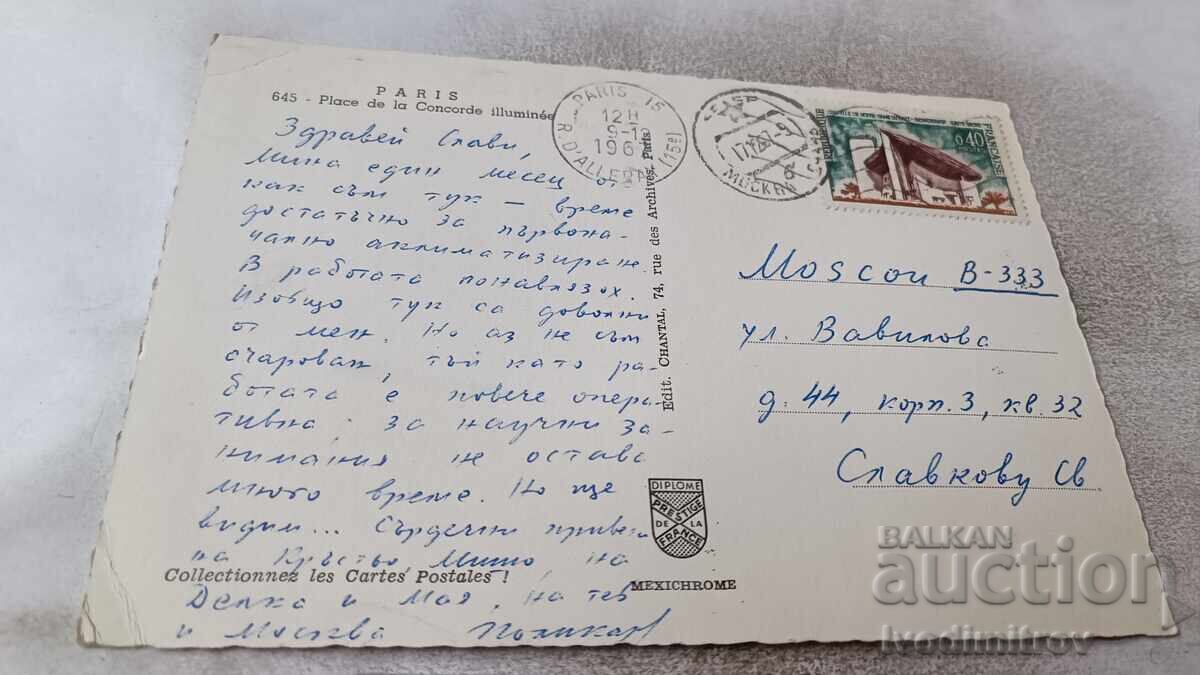 PARIS
645 - Place de la Concorde illuminée
Здравей Слави,
Мина един месец от
как съм тук — време
достатъчно за първона-
чално аклиматизиране.
В работата понавлязох.
Изобщо тук са доволни
от мен. Но аз не съм
очарован, тъй като ра-
ботата е повече опера-
тивна; за научни за-
нимания не остава
много време. Но ще
видим... Сърдечни привети
на Кръстьо Мишо, на
Collectionnez les Cartes Postales !
Делка и Мая, на теб
и Москва Поликар
Edit. CHANTAL, 74, rue des Archives, Paris
PARIS 15
12H
9-12
196
R.D'ALLERAY (15e)
МОСКВА
RÉPUBLIQUE FRANÇAISE
0,40
POSTES
Moscou В-333
ул. Вавилова
д. 44, корп. 3, кв. 32
Славкову Св.
DIPLOME
PRESTIGE
DE LA
FRANCE
MEXICHROME
BALKAN
auction
Ivodimitrov